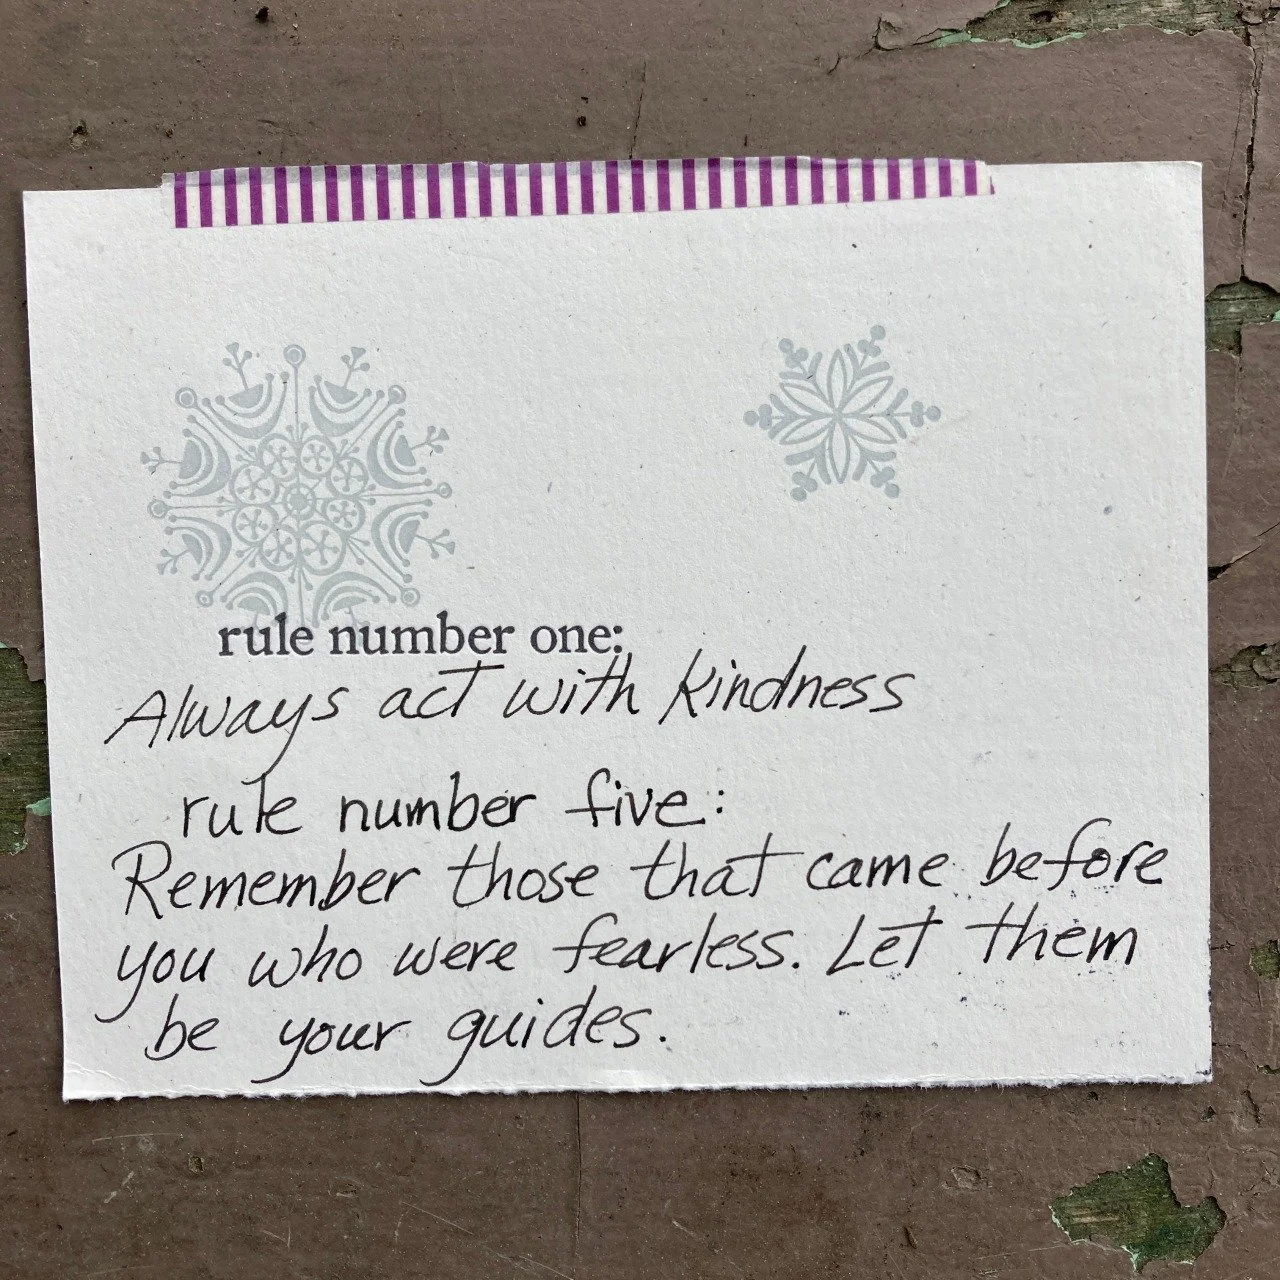 rule number one:
Always act with kindness
rule number five:
Remember those that came before
you who were fearless. Let them
be your guides.